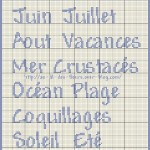 Juin Juillet
Aout Vacances
Mer Crustacés
Océan Plage
Coquillages
Soleil Eté